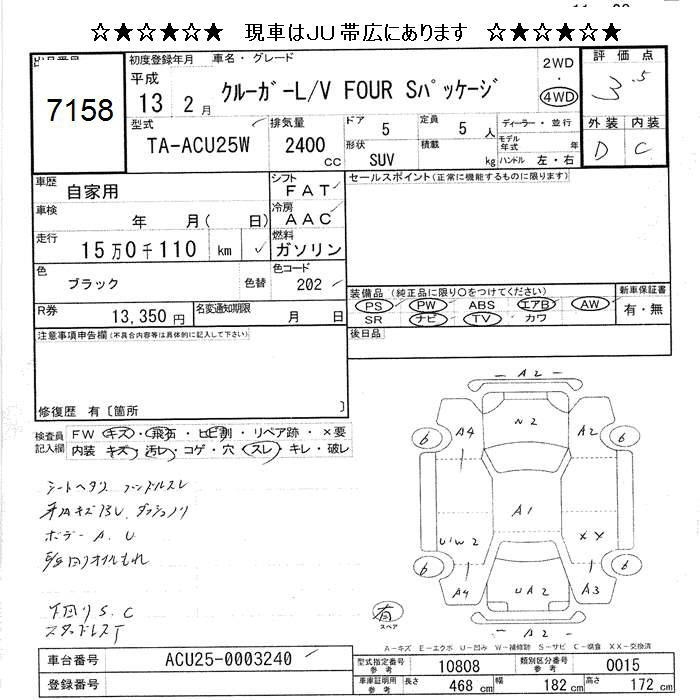 ☆★☆★☆★ 現車はJU帯広にあります ☆★☆★☆★
7158
初度登録年月 車名・グレード
平成 13 2月
クルーガーL/V FOUR Sパッケージ
2WD ・ 4WD
評価点
3.5
外装 内装
D C
型式
TA-ACU25W
排気量
2400 cc
ドア 5
形状 SUV
定員 5 人
積載 kg
ディーラー・並行
モデル年式 年
ハンドル 左・右
車歴 自家用
シフト FAT
セールスポイント(正常に機能するものに限ります)
車検 年 月( 日)
冷房 AAC
走行 15万0千110 km
燃料 ガソリン
色 ブラック
色替
色コード 202
装備品 (純正品に限り○をつけてください)
新車保証書
PS PW ABS エアB AW
SR ナビ TV カワ
有・無
R券 13,350円
名変通知期限 月 日
後日品
注意事項申告欄(不具合内容等は具体的に記入して下さい)
修復歴 有〔箇所 〕
検査員記入欄
FW キズ・飛石・ヒビ割・リペア跡・×要
内装 キズ・汚レ・コゲ・穴・スレ・キレ・破レ
シートヘタリ ハンドルスレ
ボデー A.U
下回りS.C
スタッドレスT
A2
N2
A4 A2
6 6
A1
UIW2 XX
6 6
A4 A3
UA2
A2
有
スペア
A-キズ E-エクボ U-凹み W-補修跡 S-サビ C-腐食 XX-交換済
車台番号 ACU25-0003240
登録番号
型式指定番号 参考 10808
類別区分番号 参考 0015
車庫証明用 参考 長さ 468cm 幅 182cm 高さ 172cm